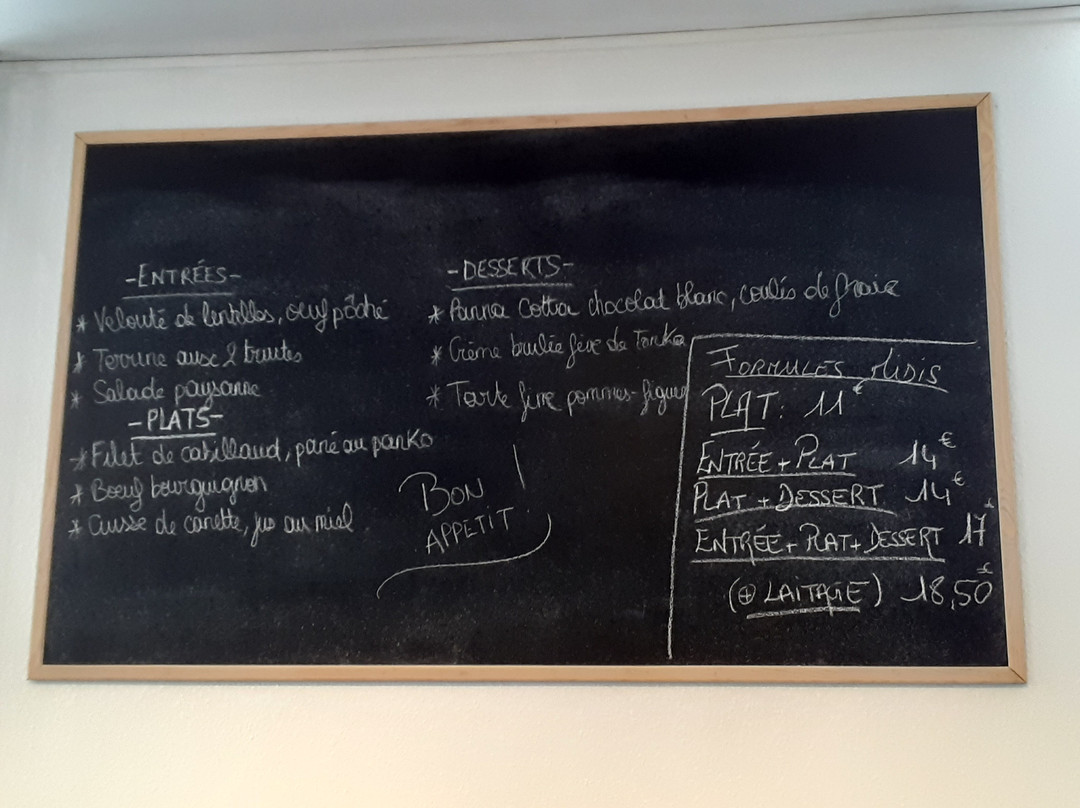 -ENTRÉES-
* Velouté de lentilles, oeuf pôché
* Terrine aux 2 truites
* Salade paysanne
-PLATS-
* Filet de cabillaud, pané au panko
* Boeuf bourguignon
* Cuisse de canette, jus au miel
-DESSERTS-
* Panna Cotta chocolat blanc, coulis de fraise
* Crème brulée fève de Tonka
* Tarte fine pommes-figues
BON APPETIT !
FORMULES MIDIS
PLAT : 11€
ENTRÉE + PLAT 14€
PLAT + DESSERT 14€
ENTRÉE + PLAT + DESSERT 17€
(⊕ LAITAGE) 18,50€